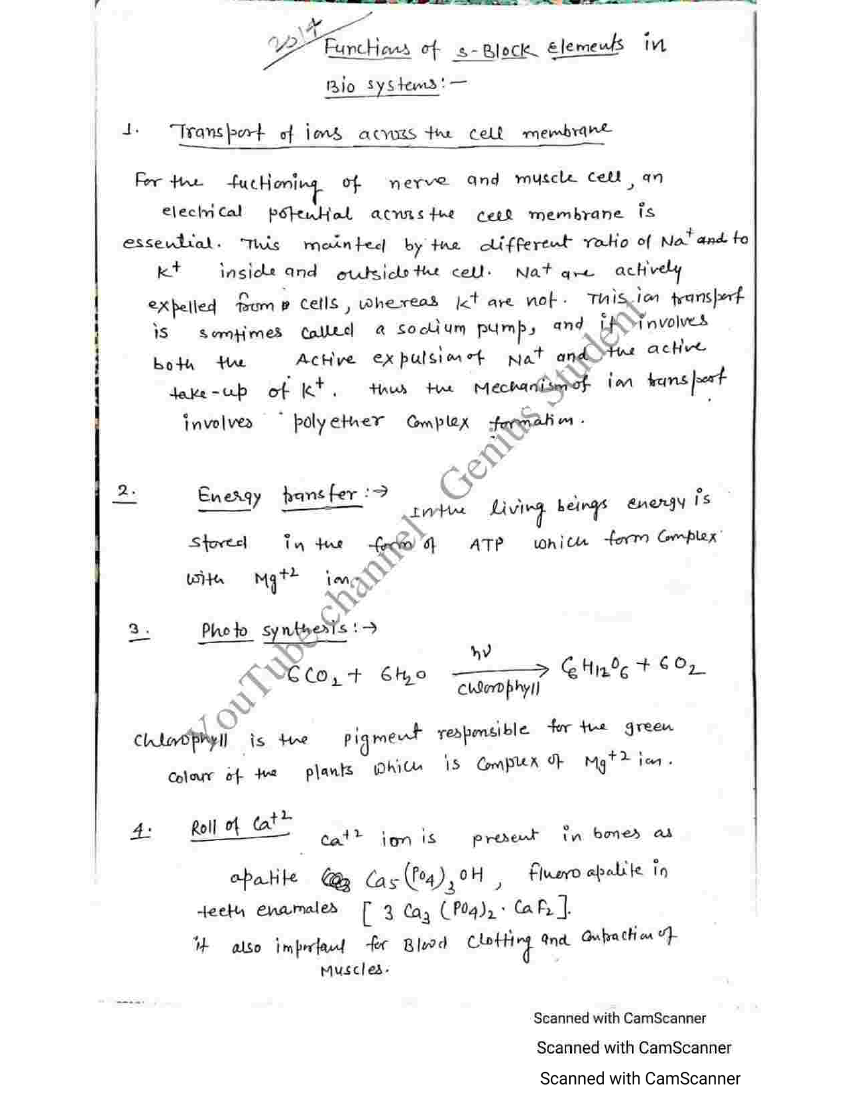 2017
Functions of s-Block elements in
Bio systems:-
1. Transport of ions across the cell membrane
For the fuctioning of nerve and muscle cell, an
electrical potential across the cell membrane is
essential. This mainted by the different ratio of Na⁺ and to
K⁺ inside and outside the cell. Na⁺ are actively
expelled from cells, whereas K⁺ are not. This ion transport
is somtimes called a sodium pump, and it involves
both the Active expulsion of Na⁺ and the active
take-up of K⁺. thus the Mechanism of ion transport
involves polyether Complex formation.
2. Energy transfer:→ In the living beings energy is
stored in the form of ATP which form Complex
with Mg⁺² ion.
3. Photo synthesis:→
6CO₂ + 6H₂O hν chlorophyll → C₆H₁₂O₆ + 6O₂
chlorophyll is the pigment responsible for the green
colour of the plants which is Complex of Mg⁺² ion.
4. Roll of Ca⁺² Ca⁺² ion is present in bones as
apatite Ca₅(PO₄)₃OH, fluoro apatite in
teeth enamales [3 Ca₃(PO₄)₂ · CaF₂].
it also important for Blood Clotting and Contraction of
Muscles.
YouTube channel - Genius Student
Scanned with CamScanner
Scanned with CamScanner
Scanned with CamScanner